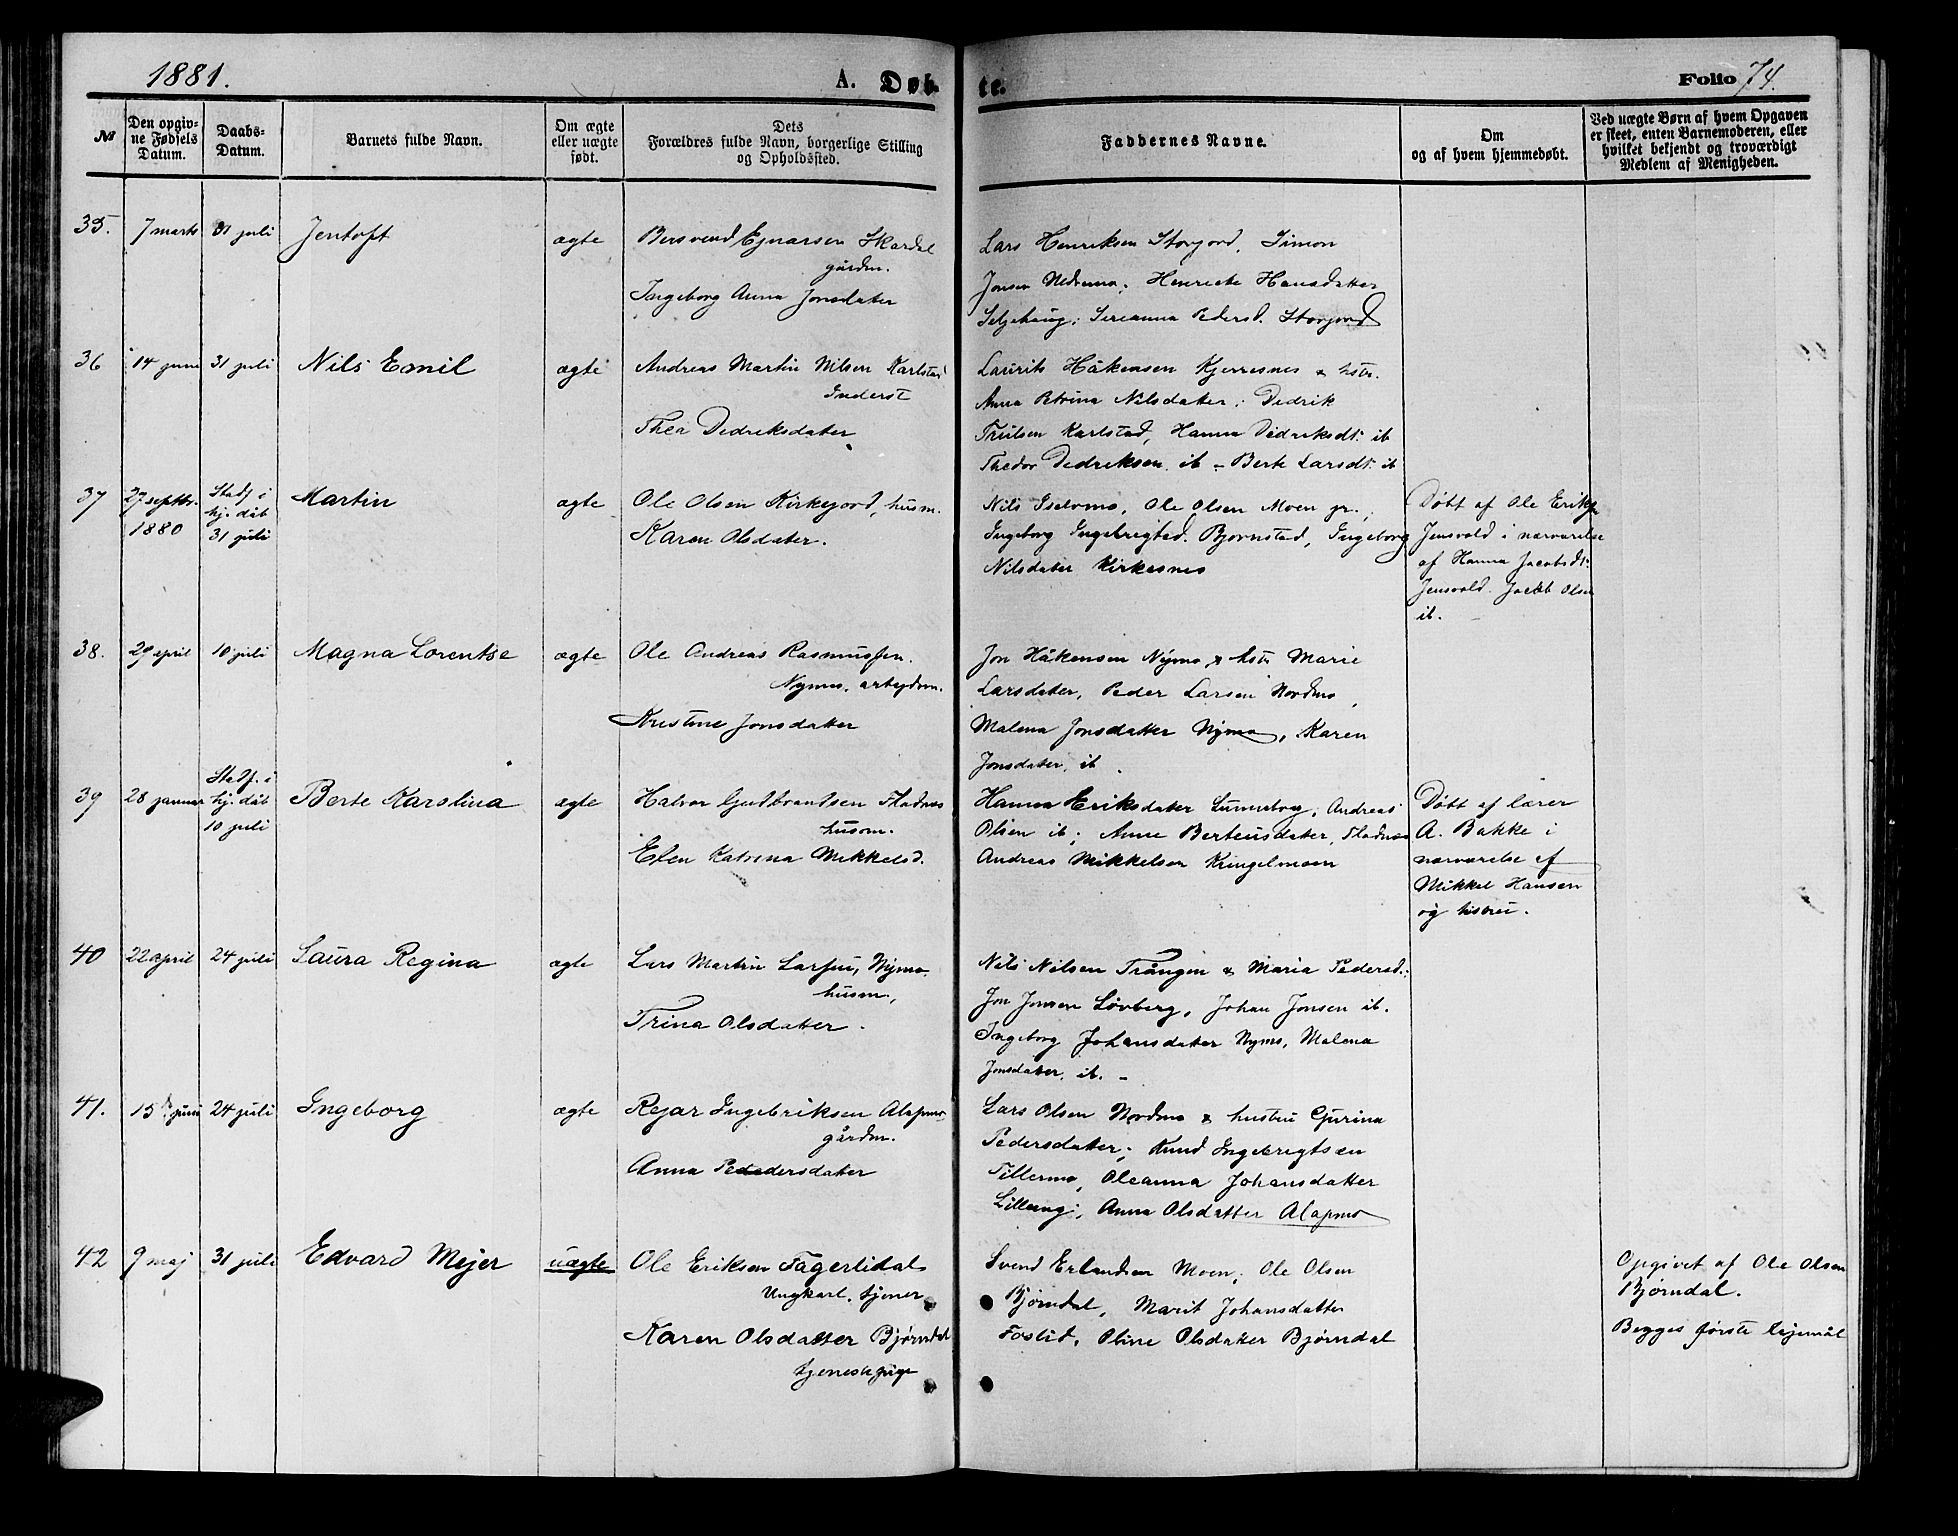 1881.
A. Døb-
te.
Folio 74.
№
Den opgiv-
ne Fødsels
Datum.
Daabs-
Datum.
Barnets fulde Navn.
Om ægte
eller uægte
født.
Dets
Forældres fulde Navn, borgerlige Stilling
og Opholdssted.
Faddernes Navne.
Om
og af hvem hjemmedøbt.
Ved uægte Børn af hvem Opgaven
er skeet, enten Barnemoderen, eller
hvilket bekjendt og troværdigt
Medlem af Menigheden.
35.
7 marts
31 juli
Jentoft
ægte
Bersvend Ejnarsen Skardal
gårdm.
Ingeborg Anna Jonsdater
Lars Henriksen Storjord, Simon
Jonsen Nedremo, Henriete Hansdatter
Seljehaug; Sereanna Pedersd. Storjord
36
14 juni
31 juli
Nils Emil
ægte
Andreas Martin Nilsen Karlstad
Inderst
Thea Dedriksdater
Laurits Håkensen Kjerresnes & hstr.
Anna Petrina Nilsdatter; Dedrik
Trulsen Karlstad, Hanna Dedriksdt. ib
Thedor Dedriksen ib - Berte Larsdt. ib
37
27 septbr.
1880
Stadf i
hj. dåb
31 juli
Martin
ægte
Ole Olsen Kirkejord, husm.
Karen Olsdater.
Nils Iselvmo, Ole Olsen Moen gr.,
Ingeborg Ingebrigtsd. Bjørnstad, Ingeborg
Nilsdater Kirkesnes
Døbt af Ole Eriksen
Jensvold i nærværelse
af Hanna Jacobsdt.
Jensvold. Jacob Olsen
ib.
38.
29 april
10 juli
Magna Lorentse
ægte
Ole Andreas Rasmussen.
Nymo, arbejdsm.
Kristine Jonsdatter
Jon Håkensen Nymo & hstr Marie
Larsdater, Peder Larsen Nordmo,
Malena Jonsdatter Nymo, Karen
Jonsdater, ib.
39
28 januar
Stadf. i
hj. dåb
10 juli
Berte Karolina
ægte
Halvor Gudbrandsen Fladnes
husm.
Elen Katrina Mikkelsd.
Hanna Eriksdater Sunneborg, Andreas
Olsen ib; Anne Berteusdater, Fladnes
Andreas Mikkelsen Kringelmoen
Døbt af lærer
A. Bakke i
nærværelse af
Mikkel Hansen
og hstru.
40
22 april
24 juli
Laura Regina
ægte
Lars Martin Larsen, Nymo
husm,
Trina Olsdatter.
Nils Nilsen Trangen & Maria Pedersd.;
Jon Jonsen Løvberg, Johan Jonsen ib.
Ingeborg Johansdatter Nymo, Malena
Jonsdater, ib. -
41.
15 juni
24 juli
Ingeborg
ægte
Rejar Ingebriksen Alapmo
gårdm.
Anna Pededersdater
Lars Olsen Nordmo & hustru Gjurina
Pedersdatter, Knud Ingebrigtsen
Tillermo, Oleanna Johansdatter
Lilleng; Anna Olsdatter Alapmo
42
9 maj
31 juli
Edvard Mejer
uægte
Ole Eriksen Fagerlidal
Ungkarl, tjener
Karen Olsdatter Bjørndal
tjenestepige
Svend Erlandsen Moen; Ole Olsen
Bjørndal, Marit Johansdatter
Foslid, Oline Olsdater Bjørndal
Opgivet af Ole Olsen
Bjørndal.
Begges første lejemål